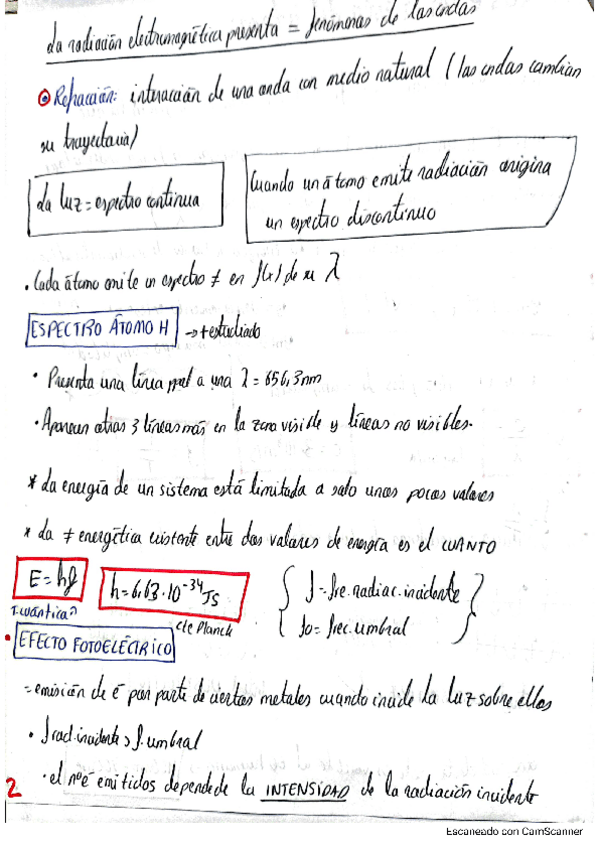 La radiación electromagnética presenta = fenómenos de las ondas
Refracción: interacción de una onda con medio natural (las ondas cambian
su trayectoria)
La luz = espectro continua
Cuando un átomo emite radiación origina
un espectro discontinuo
. Cada átomo emite un espectro ≠ en f(x) de su λ
ESPECTRO ÁTOMO H → + estudiado
· Presenta una línea ppal a una λ = 656,3nm
· Aparecen otras 3 líneas más en la zona visible y líneas no visibles.
* La energía de un sistema está limitada a solo unos pocos valores
* La ≠ energética existente entre dos valores de energía es el CUANTO
E = hf
h = 6,63·10⁻³⁴ Js
T. cuántica
cte Planck
f = fre. radiac. incidente
fo = frec. umbral
• EFECTO FOTOELÉCTRICO
= emisión de é por parte de ciertos metales cuando incide la luz sobre ellos
· f rad. incidente > f. umbral
· el nº é emitidos depende de la INTENSIDAD de la radiación incidente
2
Escaneado con CamScanner